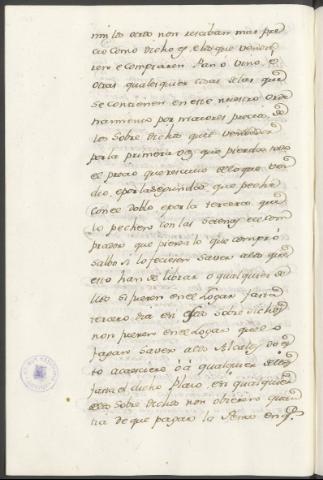 nin los otros non reciban mas pre
cio como dicho es, e los que vendie
ren e compraren Pan o vino, o
otras qualesquier cosas de las que
se contienen en este nuestro orde
namiento por maiores precios, de
los sobre dichos que el vendedor
por la primera vez que pierda todo
el precio que reciviere de lo que ven
dio, e por la segunda, que peche
con el doblo, e por la tercera que
lo peche con las setenas e el com
prador que pierda lo que compró
salbo si lo ficieren saver a los que
esto han de librar o qualquier de
llos si fueren en el Logar fasta
tercero dia en los sobre dichos
non fueren en el Logar que lo
fagan saver a los Alcaldes do es
to acaeciere o a qualquier dellos
fasta el dicho Plaço, e a qualquier
de los sobre dichos non obieren quan
tia de que pagar la Pena en que